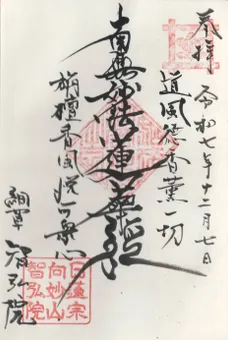 奉拝
令和七年十二月七日
道風徳香薫一切
南無妙法蓮華経
栴檀香風悦可衆心
智弘院
日蓮宗
向妙山
智弘院